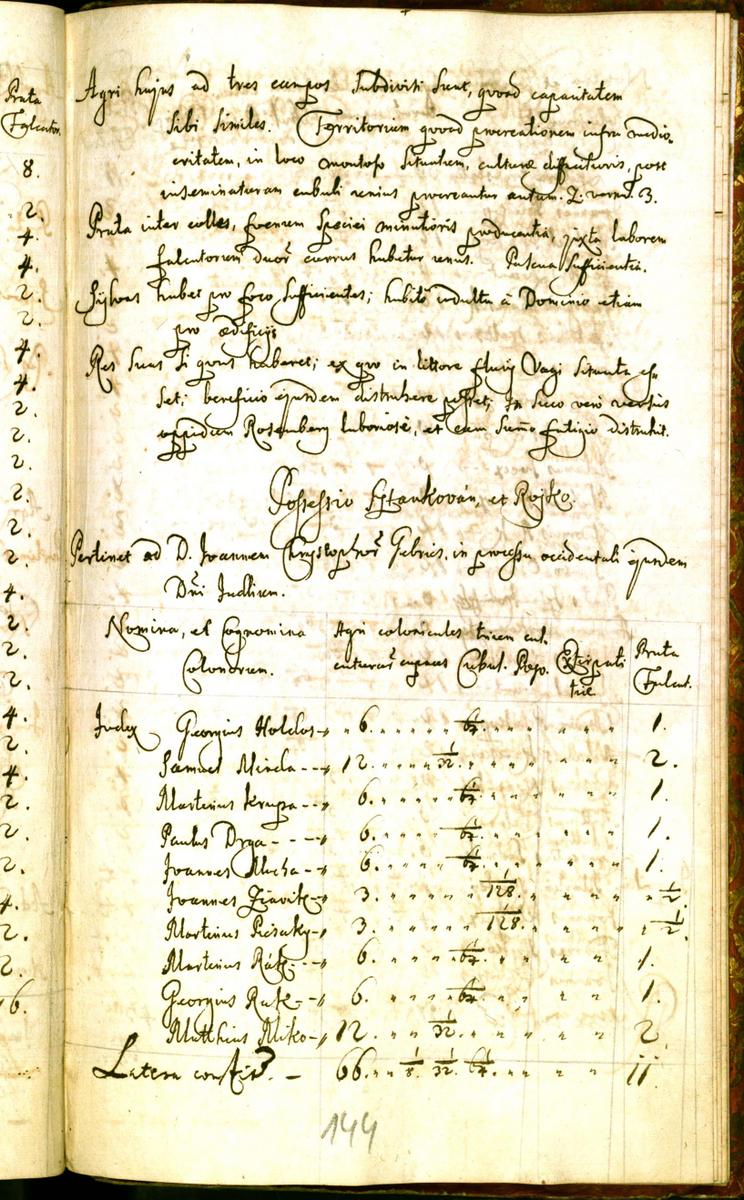 Prata
Falcator.
8.
2.
4.
4.
2.
2.
4.
4.
2.
2.
2.
2.
2.
2.
4.
2.
2.
2.
4.
2.
4.
2.
2.
2.
4.
2.
2.
16.
Agri hujus ad tres campos subdivisi sunt, quoad capacitatem
sibi similes. Territorium quoad procreationem infra medio-
critatem, in loco montoso situatum, culturæ difficilioris, post
inseminaturam cubuli unius procreantur autum. 2. vernal. 3.
Prata inter colles, foenum speciei minutioris producentia, juxta laborem
falcatorum duor currus habetur unus. Pascua sufficientia.
Sylvas habet pro foco sufficientes; habito indultu à Dominio etiam
pro ædificijs
Res suas si quas haberet; ex quo in littore fluvij Vagi situata es-
set; beneficio ejusdem distrahere posset; in sicco vero versus
oppidum Rosenberg laboriosè, et cum suma fatigio distrahit.
Possessio Sztankován, et Rojko.
Pertinet ad D. Joannem Chrystophor Gabries, in processu occidentali ejusdem
Dni Judlium.
Nomina, et Cognomina
Colonorum.
Agri colonicales trium
capaces Cubul. Poso.
Extirpati
tiæ
Prata
Falcat.
Judex Georgius Holdos 6. 1/64 1.
Samuel Mirda 12. 1/32. 2.
Martinus Krupa 6. 1/64 1.
Paulus Drga 6. 1/64 1.
Joannes Mucha 6. 1/64 1.
Joannes Ziavik 3. 1/128. 1/2.
Martinus 3. 1/128. 1/2.
Martinus Rátk 6. 1/64 1.
Georgius Ratk 6. 1/64 1.
Matthius Miko 12. 1/32. 2
Latera 66. 1/8. 1/32. 1/64. 11.
144